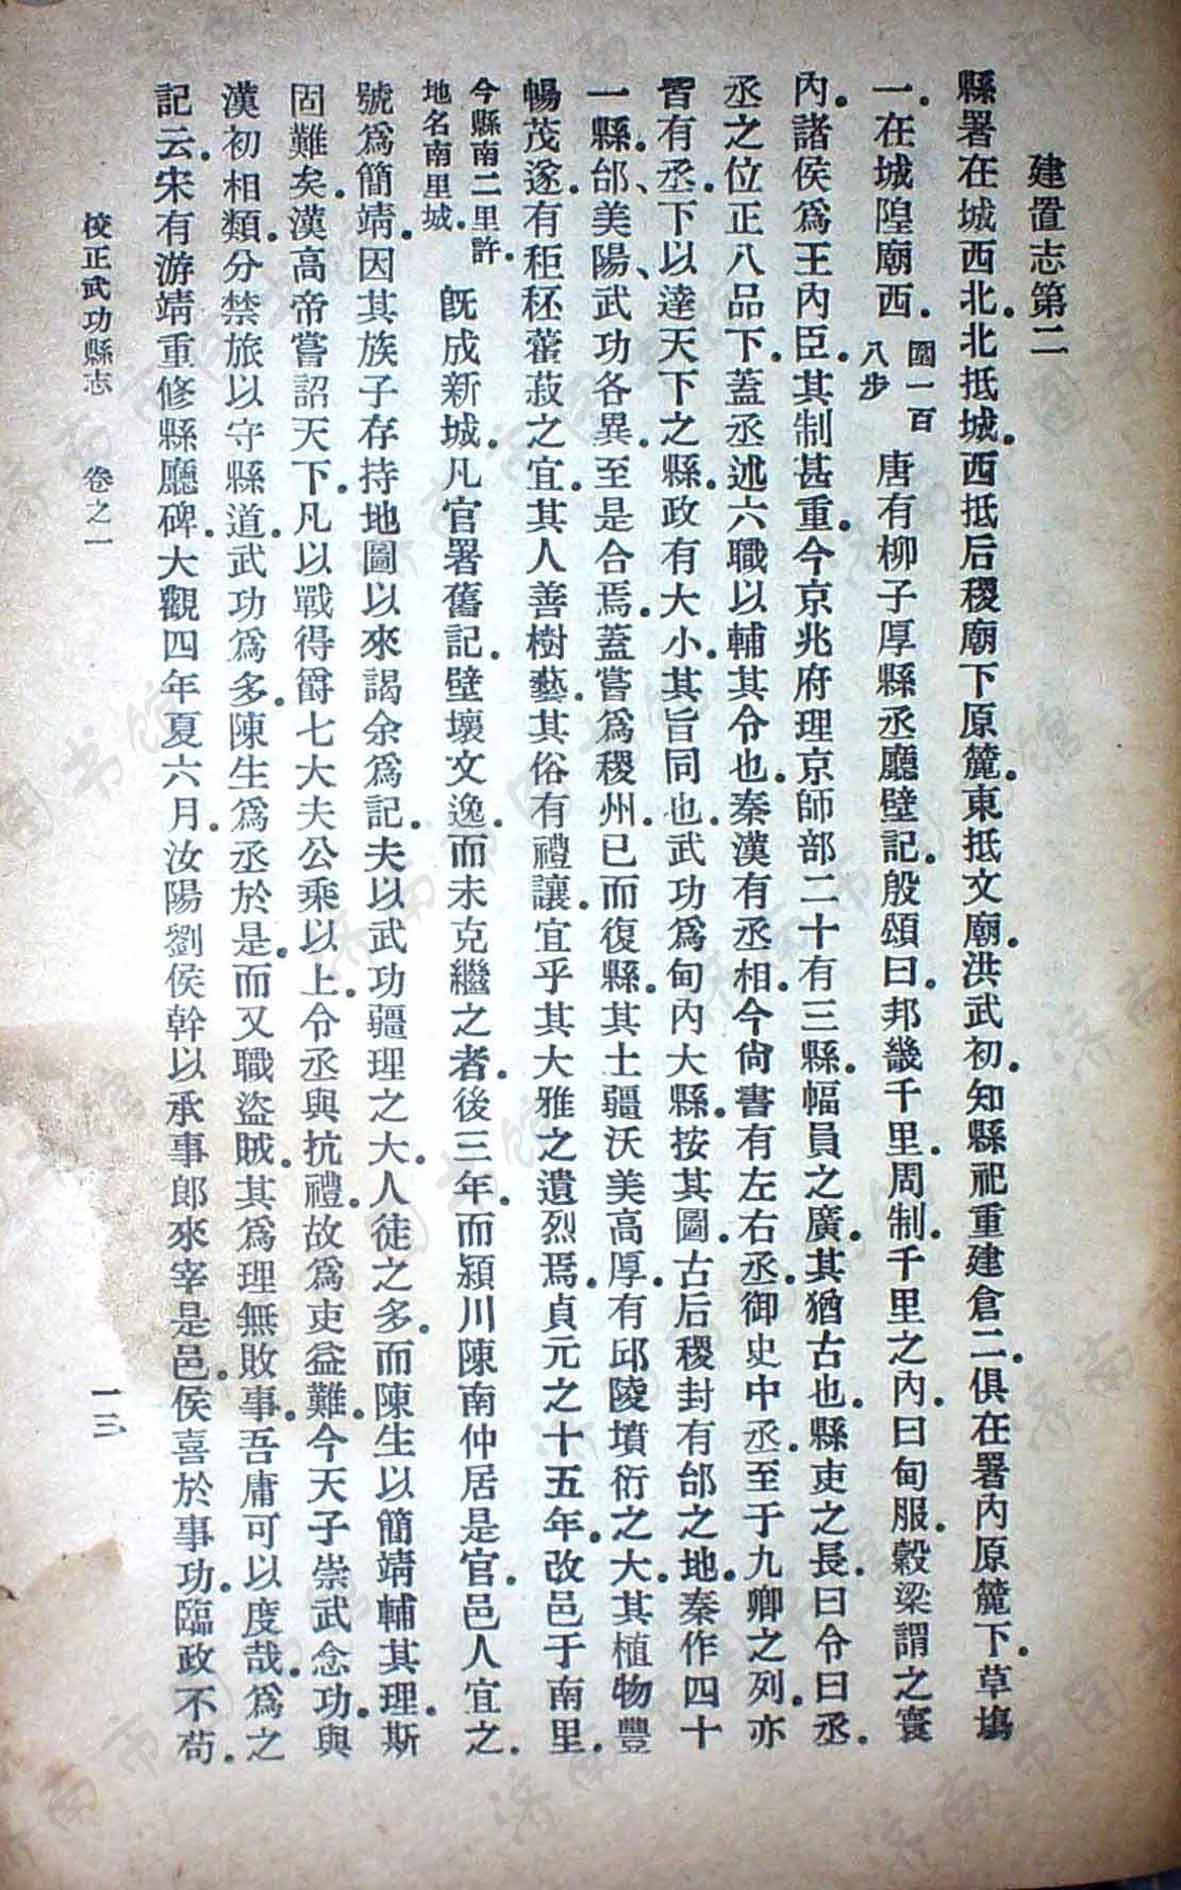 建置志第二
縣署在城西北。北抵城。西抵后稷廟下原麓。東抵文廟。洪武初。知縣祀重建倉二。俱在署內原麓下。草塲
一。在城隍廟西。圍一百八步 唐有柳子厚縣丞廳壁記。殷頌曰。邦畿千里。周制。千里之內。曰甸服。穀梁謂之寰
內。諸侯爲王內臣。其制甚重。今京兆府理京師部二十有三縣。幅員之廣。其猶古也。縣吏之長。曰令曰丞。
丞之位正八品下。蓋丞述六職以輔其令也。秦漢有丞相。今尙書有左右丞。御史中丞。至于九卿之列。亦
皆有丞。下以達天下之縣。政有大小。其旨同也。武功爲甸內大縣。按其圖。古后稷封有邰之地。秦作四十
一縣。邰、美陽、武功各異。至是合焉。蓋嘗爲稷州。已而復縣。其土疆沃美高厚。有邱陵墳衍之大。其植物豐
暢茂遂。有秬秠藿菽之宜。其人善樹藝。其俗有禮讓。宜乎其大雅之遺烈焉。貞元之十五年。改邑于南里。
今縣南二里許。地名南里城。 旣成新城。凡官署舊記。壁壞文逸。而未克繼之者。後三年。而潁川陳南仲居是官。邑人宜之。
號爲簡靖。因其族子存持地圖以來謁余爲記。夫以武功疆理之大。人徒之多。而陳生以簡靖輔其理。斯
固難矣。漢高帝嘗詔天下。凡以戰得爵七大夫公乘以上。令丞與抗禮。故爲吏益難。今天子崇武念功。與
漢初相類。分禁旅以守縣道。武功爲多。陳生爲丞於是。而又職盜賊。其爲理無敗事。吾庸可以度哉。爲之
記云。宋有游靖重修縣廳碑。大觀四年夏六月。汝陽劉侯幹以承事郎來宰是邑。侯喜於事功。臨政不苟。
校正武功縣志 卷之一 一三
濟南市图书馆